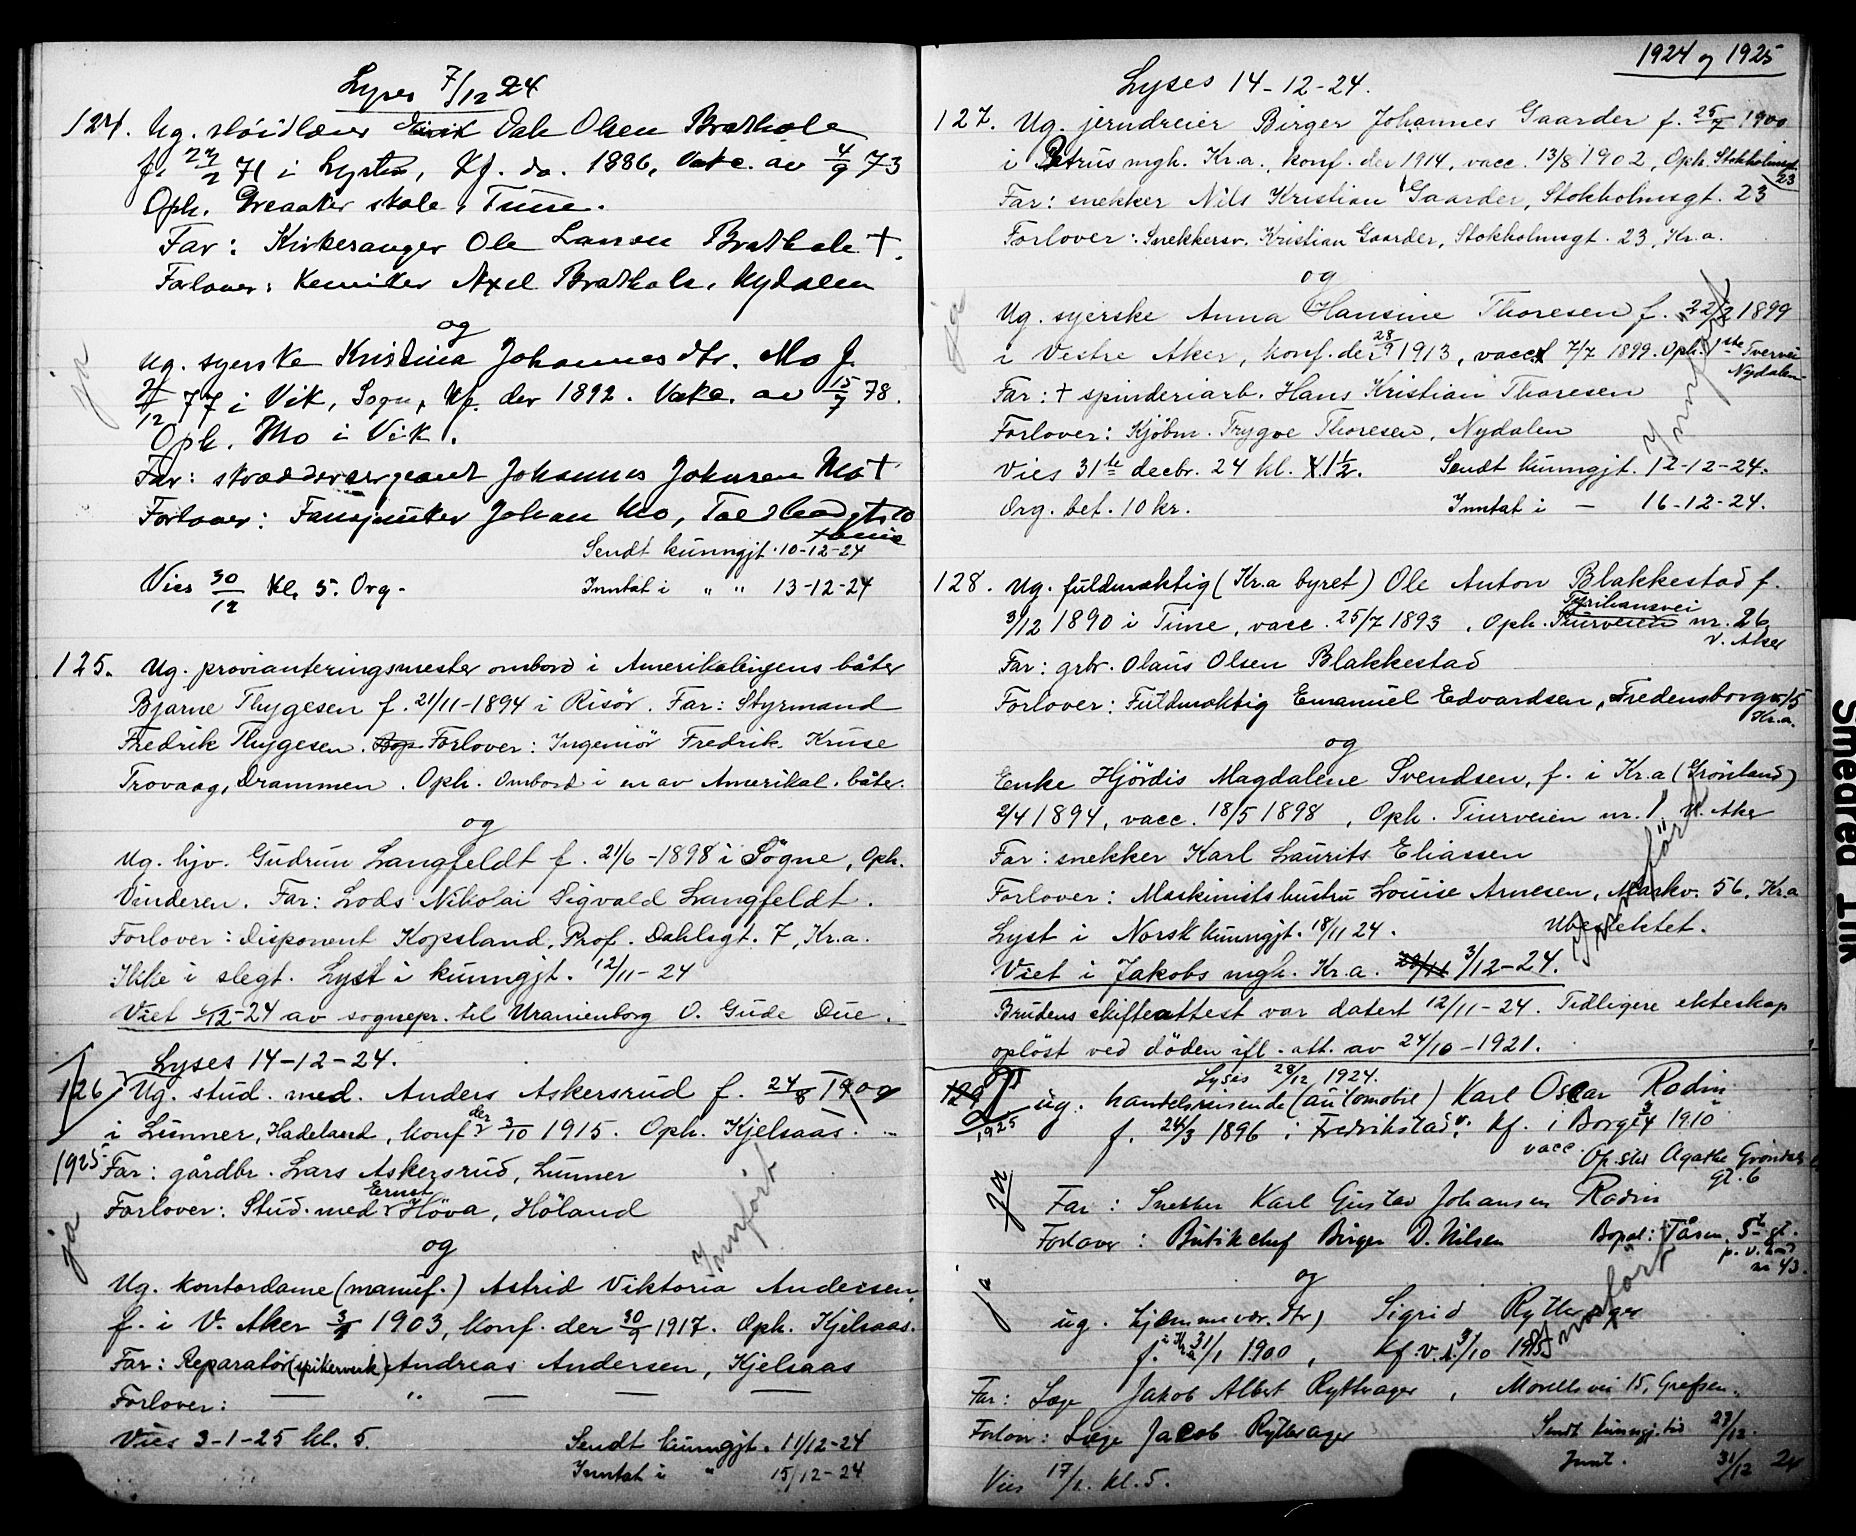 Lyses 7/12 24
124. Ug. sløidlærer Eirik Dale Olsen Brathole
f. 22/2 71 i Lyster, kf. do. 1886, Vakc. av 4/9 73
Oph. Greaaker skole, Tune.
Far: Kirkesanger Ole Larsen Brathole +.
Forlover: Kemiker Axel Brathole, Nydalen
og
ja
ug. syerske Kristina Johannesdtr. Mo f.
12 77 i Vik, Sogn, kf. der 1892. Vakc. av 15/7 78.
Oph. Mo i Vik.
Far: skreddersergeant Johannes Johnsen Mo +
Forlover: Johan Mo,
Sendt kunngjt. 10-12-24
Vies 30/12 kl. 5. Org.
Inntat i " " 13-12-24
125. Ug. provianteringsmester ombord i Amerikalinjens båter
Bjarne Thygesen f. 21/11-1894 i Risör. Far: Styrmand
Fredrik Thygesen. Forlover: Ingeniör Fredrik Kruse
Trovaag, Drammen. Oph. Ombord i en av Amerikal. båter.
og
Ug. hjv. Gudrun Langfeldt f. 21/6-1898 i Sögne, Oph.
Vinderen. Far: Lods Nikolai Sigvald Langfeldt.
Forlover: disponent Kopsland, Prof. Dahlsgt. 7, Kr.a.
Ikke i slegt. Lyst i kunngjt. 12/11-24
Viet 6/12-24 av sognepr. til Uranienborg O. Gude Due.
Lyses 14-12-24.
126 Ug. stud. med. Anders Askersrud f. 24/8 1900
i Lunner, Hadeland, konf. der 3/10 1915. Oph. Kjelsaas.
1925 Far: gårdbr. Lars Askersrud, Lunner
Forlover: Stud. med. Ernst Höva, Höland
ja
Innfört
og
Ug. kontordame (manuf.) Astrid Viktoria Andersen,
f. i V. Aker 1903, konf. der 30/9 1917. Oph. Kjelsaas.
Far: Reparatör (spikerverk) Andreas Andersen, Kjelsaas
Forlover: — " — — —
Vies 3-1-25 kl. 5.
Sendt kunngjt. 11/12-24
Inntat i " 15/12-24
1924 og 1925
Lyses 14-12-24.
127. Ug. jerndreier Birger Johannes Gaarder f. 25/7 1900
i Petrus mgh. Kr.a., konf. der 1914, vacc. 13/8 1902, Oph. Stokholmsgt. 23
Far: snekker Nils Kristian Gaarder, Stokholmsgt. 23
Forlover: Snekkersv. Kristian Gaarder, Stokholmsgt. 23, Kr.a.
og
ja
Innfört
Ug. syerske Anna Hansine Thoresen f. 22/2 1899
i Vestre Aker, konf. der 28/9 1913, vacc. 7/7 1899. Oph. 1ste Tvervei Nydalen
Far: + spinderiarb. Hans Kristian Thoresen
Forlover: Kjöbm. Trygve Thoresen, Nydalen
Vies 31te decbr. 24 kl. 1½.
Sendt kunngjt. 12-12-24.
Org. bet. 10 kr.
Inntat i — 16-12-24.
128. Ug. fuldmektig (Kr.a byret) Ole Anton Blakkestad f.
3/12 1890 i Time, vacc. 25/7 1893, Oph. Tiurveien Tyrihansvei nr. 26 V. Aker
Far: grbr. Olaus Olsen Blakkestad
Forlover: Fuldmektig Emanuel Edvardsen, Fredensborgv. Kr.a.
og
Enke Hjördis Magdalene Svendsen, f. i Kr.a (Grönland)
2/4 1894, vacc. 18/5 1898, Oph. Tiurveien nr. 1, V. Aker
Far: snekker Karl Laurits Eliassen
Forlover: Maskinistshustru Louise Arnesen, Markv. 56, Kr.a
Lyst i Norsk kunngjt. 18/11 24.
Ubeslektet.
Innfört
Viet i Jakobs mgh. Kr.a. 29/11 3/12-24.
Brudens skifteattest var datert 12/11-24. Tidligere ekteskap
oplöst ved döden ifl. att. av 24/10-1921.
Lyses 28/12 1924.
129 1925 ug. handelsreisende (automobil) Karl Oscar Rodin
f. 24/3 1896 i Fredrikstad, kf. i Borge 1910
vacc
Op.std Agathe Gröndals gt. 6
ja
Far: Snekker Karl Gustav Johansen Rodin
Forlover: Butikchef Birger D. Nilsen
Bopæl: Tåsen
og
ja
Innfört
ug. hjemmevær. dtr) Sigrid Rytterager
f. i Kr.a 31/1 1900, kf. v. A. 3/10 1915
Far: Læge Jakob Albert Rytterager, Morells vei 15, Grefsen.
Forlov: Læge Jacob Rytterager
Sendt kunngj. tid 29/12.
Vies 17/1. kl. 5.
Innt. 31/12 24
Smedred 1UR